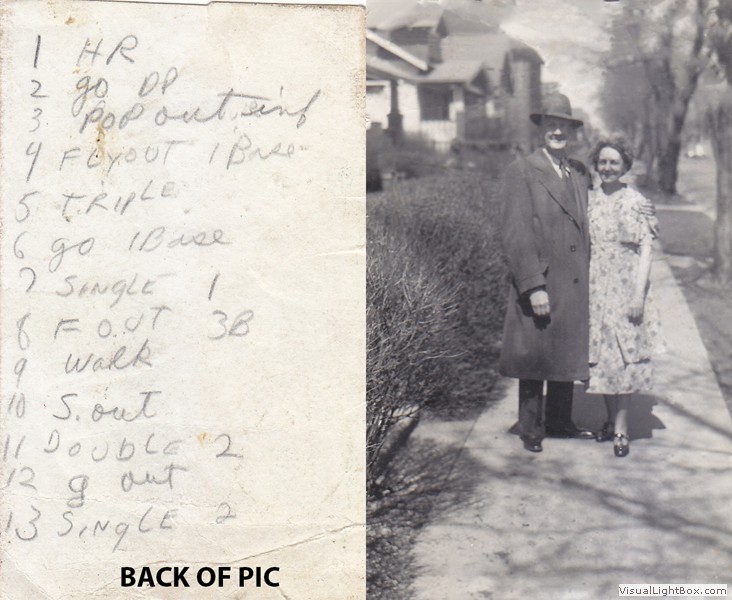 1 HR
2 go DP
3 POP out, inf
4 FLYOUT 1Base
5 TRIPLE
6 go 1Base
7 SINGLE 1
8 F OUT 3B
9 WALK
10 S.out
11 DOUBLE 2
12 g out
13 SINGLE 2
BACK OF PIC
VisualLightBox.com